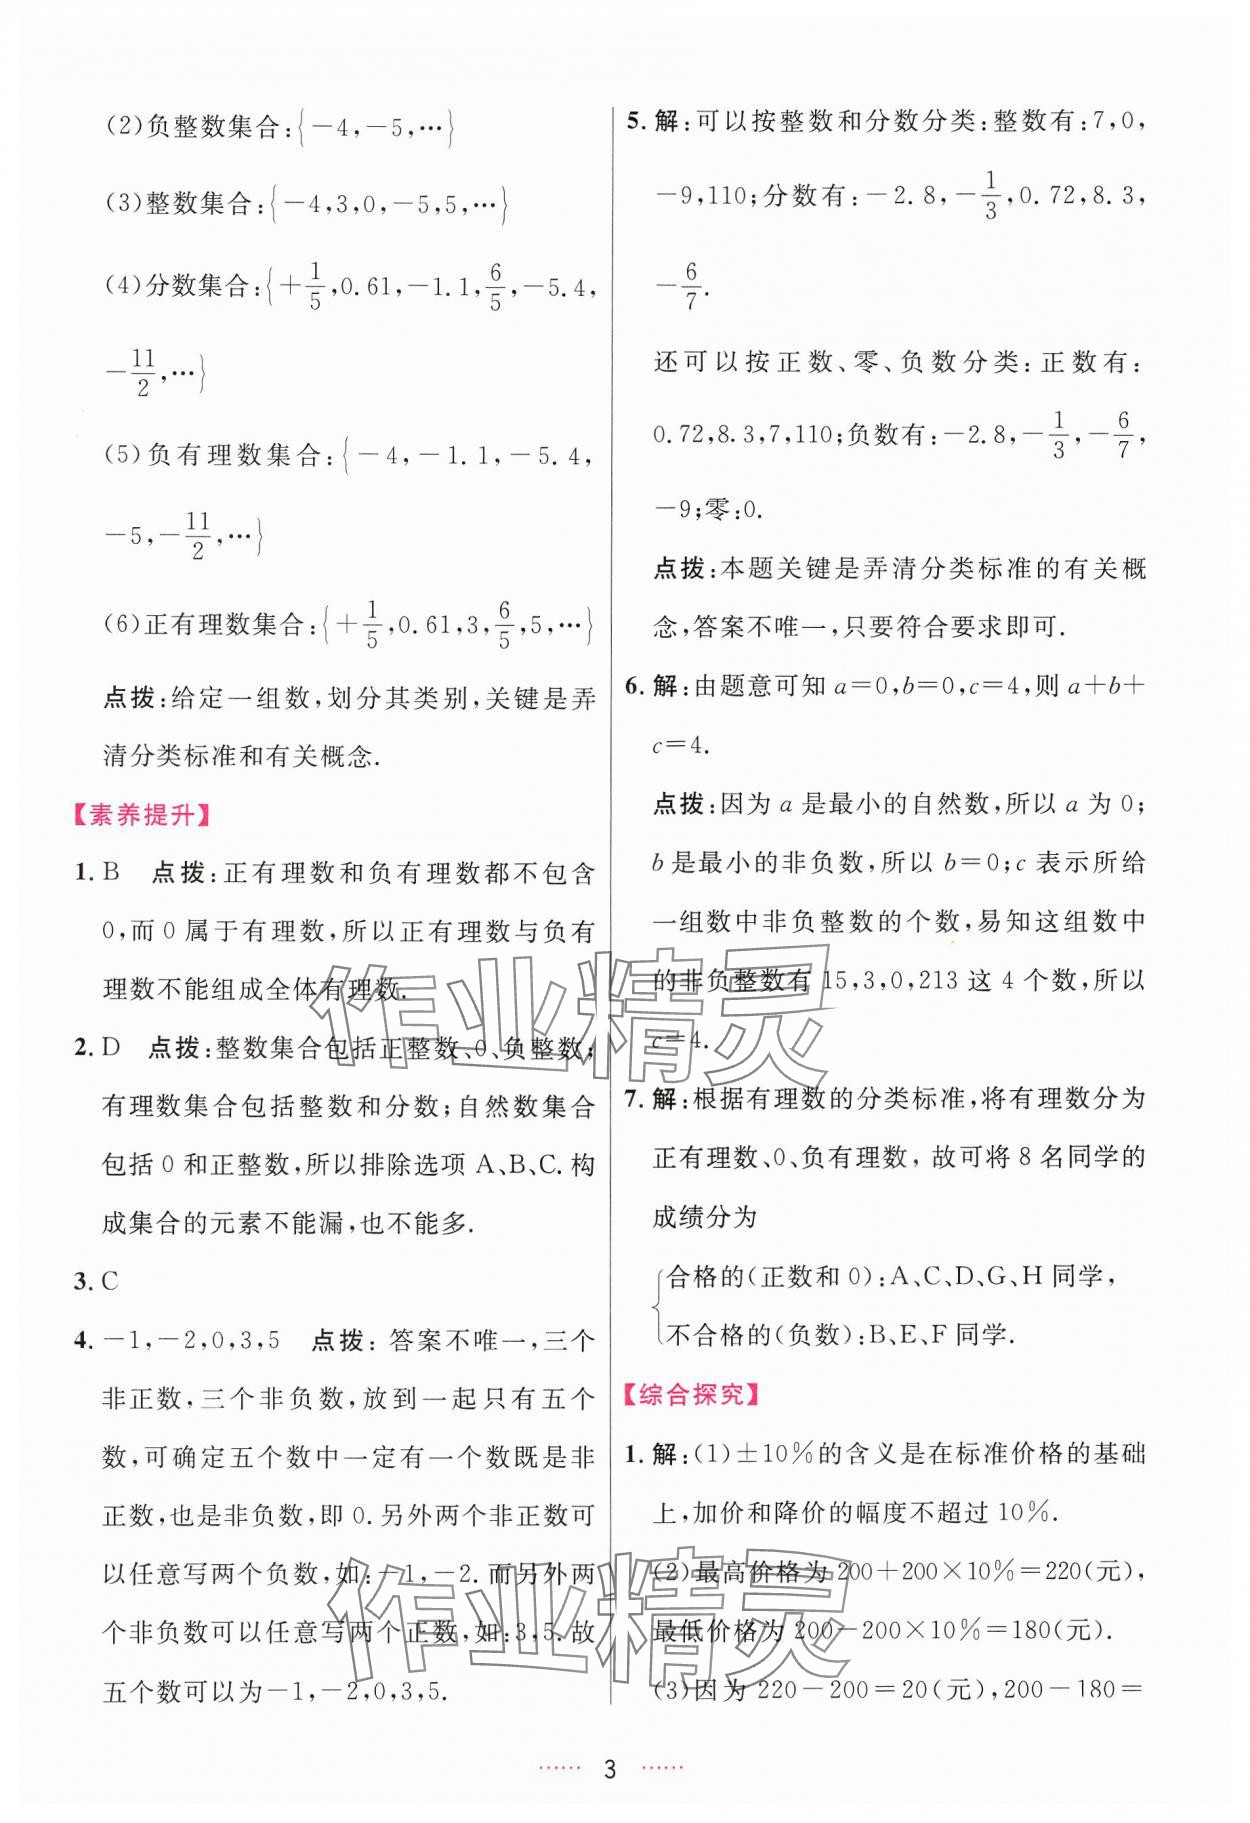 (2)负整数集合:{－4,－5,…}
(3)整数集合:{－4,3,0,－5,5,…}
(4)分数集合:{＋1/5,0.61,－1.1,6/5,－5.4,
－11/2,…}
(5)负有理数集合:{－4,－1.1,－5.4,
－5,－11/2,…}
(6)正有理数集合:{＋1/5,0.61,3,6/5,5,…}
点拨:给定一组数,划分其类别,关键是弄
清分类标准和有关概念.
【素养提升】
1. B 点拨:正有理数和负有理数都不包含
0,而0属于有理数,所以正有理数与负有
理数不能组成全体有理数.
2. D 点拨:整数集合包括正整数、0、负整数;
有理数集合包括整数和分数;自然数集合
包括0和正整数,所以排除选项A、B、C.构
成集合的元素不能漏,也不能多.
3. C
4. －1,－2,0,3,5 点拨:答案不唯一,三个
非正数,三个非负数,放到一起只有五个
数,可确定五个数中一定有一个数既是非
正数,也是非负数,即0.另外两个非正数可
以任意写两个负数,如:－1,－2.而另外两
个非负数可以任意写两个正数,如:3,5.故
五个数可以为－1,－2,0,3,5.
5. 解:可以按整数和分数分类:整数有:7,0,
－9,110;分数有:－2.8,－1/3,0.72,8.3,
－6/7.
还可以按正数、零、负数分类:正数有:
0.72,8.3,7,110;负数有:－2.8,－1/3,－6/7,
－9;零:0.
点拨:本题关键是弄清分类标准的有关概
念,答案不唯一,只要符合要求即可.
6. 解:由题意可知a＝0,b＝0,c＝4,则a＋b＋
c＝4.
点拨:因为a是最小的自然数,所以a为0;
b是最小的非负数,所以b＝0;c表示所给
一组数中非负整数的个数,易知这组数中
的非负整数有15,3,0,213这4个数,所以
c＝4.
7. 解:根据有理数的分类标准,将有理数分为
正有理数、0、负有理数,故可将8名同学的
成绩分为
{合格的(正数和0):A、C、D、G、H同学,
不合格的(负数):B、E、F同学.
【综合探究】
1. 解:(1)±10%的含义是在标准价格的基础
上,加价和降价的幅度不超过10%.
(2)最高价格为200＋200×10%＝220(元),
最低价格为200－200×10%＝180(元).
(3)因为220－200＝20(元),200－180＝
…… 3 ……
作业精灵
作业精灵